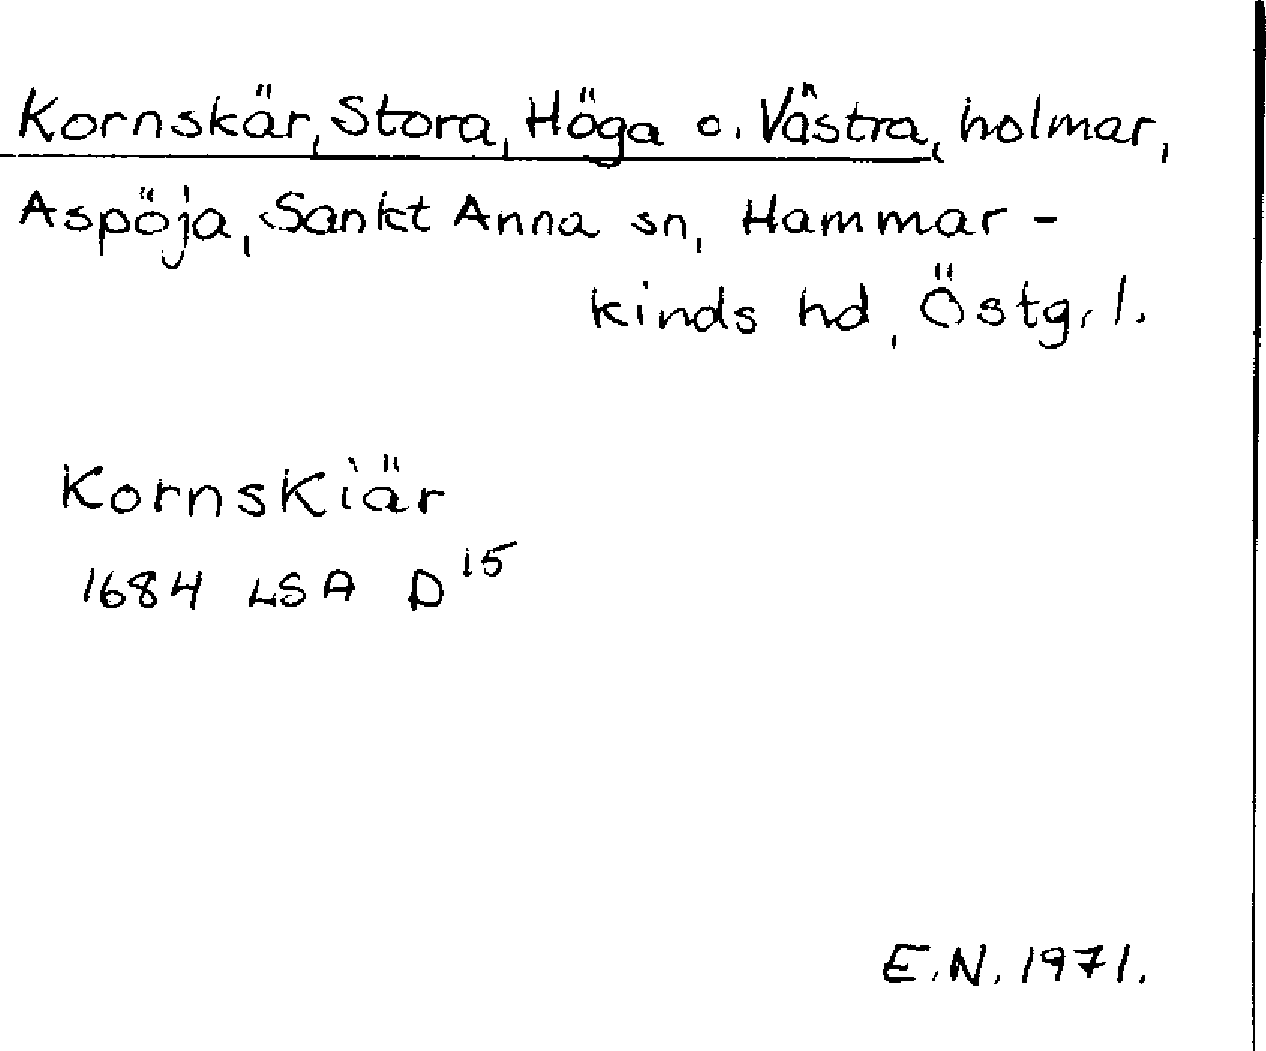 Kornskär, Stora, Höga o. Västra, holmar,
Aspöja, Sankt Anna sn, Hammar-
kinds hd, Östg. l.
Kornskiär
1684 LSA D15
E.N. 1971.